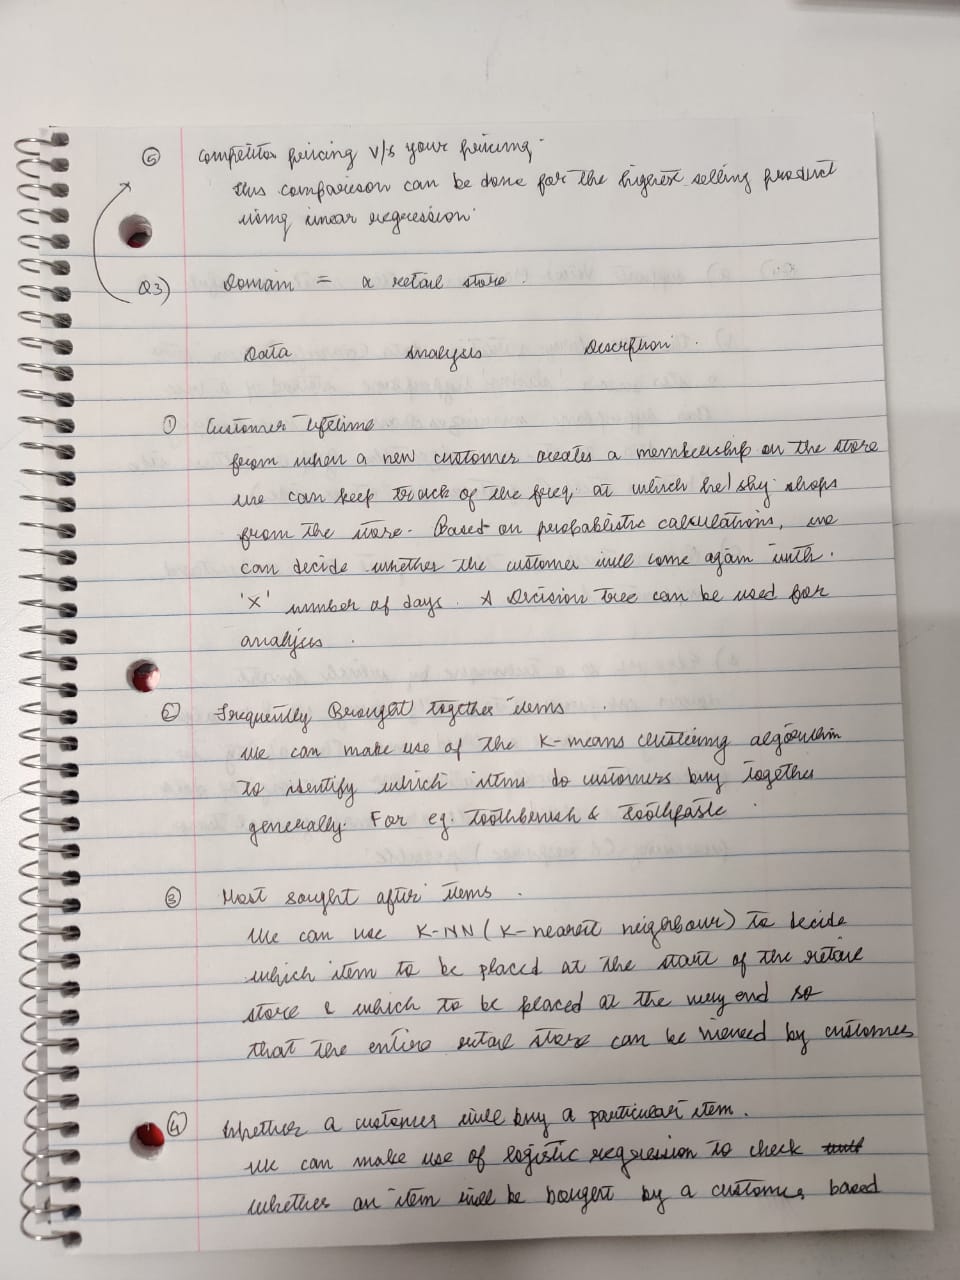 ⑤ Competitor pricing v/s your pricing.
this comparison can be done for the highest selling product
using linear regression.
Q3) Domain = a retail store.
Data Analysis Description.
① Customer lifetime
from when a new customer creates a membership on the store
we can keep track of the freq. at which he/shy shops
from the store. Based on probabilistic calculations, we
can decide whether the customer will come again with.
'x' number of days. A Decision Tree can be used for
analysis.
② Frequently Brought together items.
We can make use of the K-means clustering algorithm
to identify which items do customers buy together
generally. For eg. Toothbrush & Toothpaste.
③ Most sought after items.
We can use K-NN (K-nearest neighbour) to decide
which item to be placed at the start of the retail
store & which to be placed at the very end so
that the entire retail store can be viewed by customers
④ Whether a customer will buy a particular item.
We can make use of logistic regression to check
whether an item will be bought by a customer, based